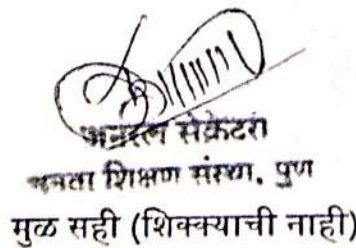 जनरल सेक्रेटरी
जनता शिक्षण संस्था, पुणे
मुळ सही (शिक्क्याची नाही)